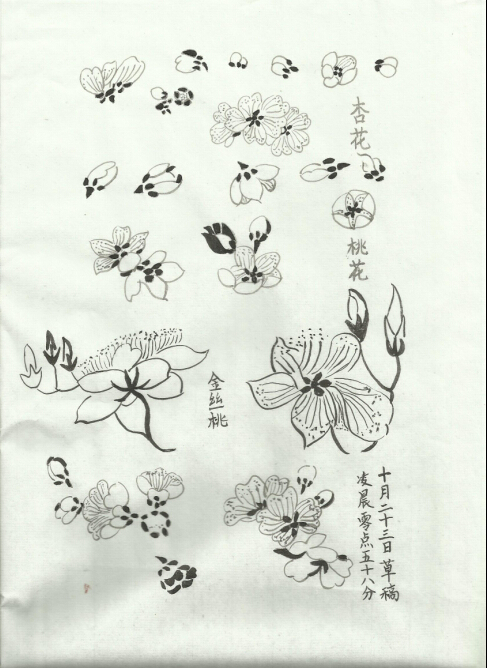 杏花
桃花
金丝桃
十月二十三日草稿
凌晨零点五十八分